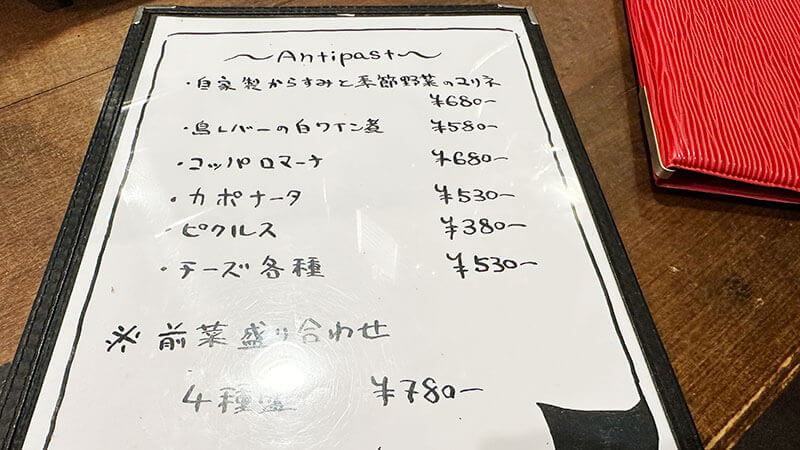 ～Antipast～
・自家製からすみと季節野菜のマリネ
¥680-
・鳥レバーの白ワイン煮 ¥580-
・コッパロマーナ ¥680-
・カポナータ ¥530-
・ピクルス ¥380-
・チーズ各種 ¥530-
※前菜盛り合わせ
4種盛 ¥780-